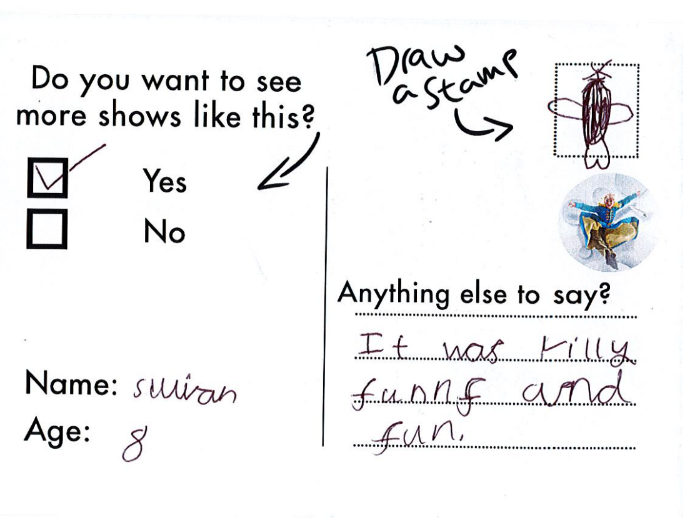 Do you want to see
more shows like this?
Yes
No
Name:
Age: 8
Draw
a stamp
Anything else to say?
It was rilly
funny and
fun.